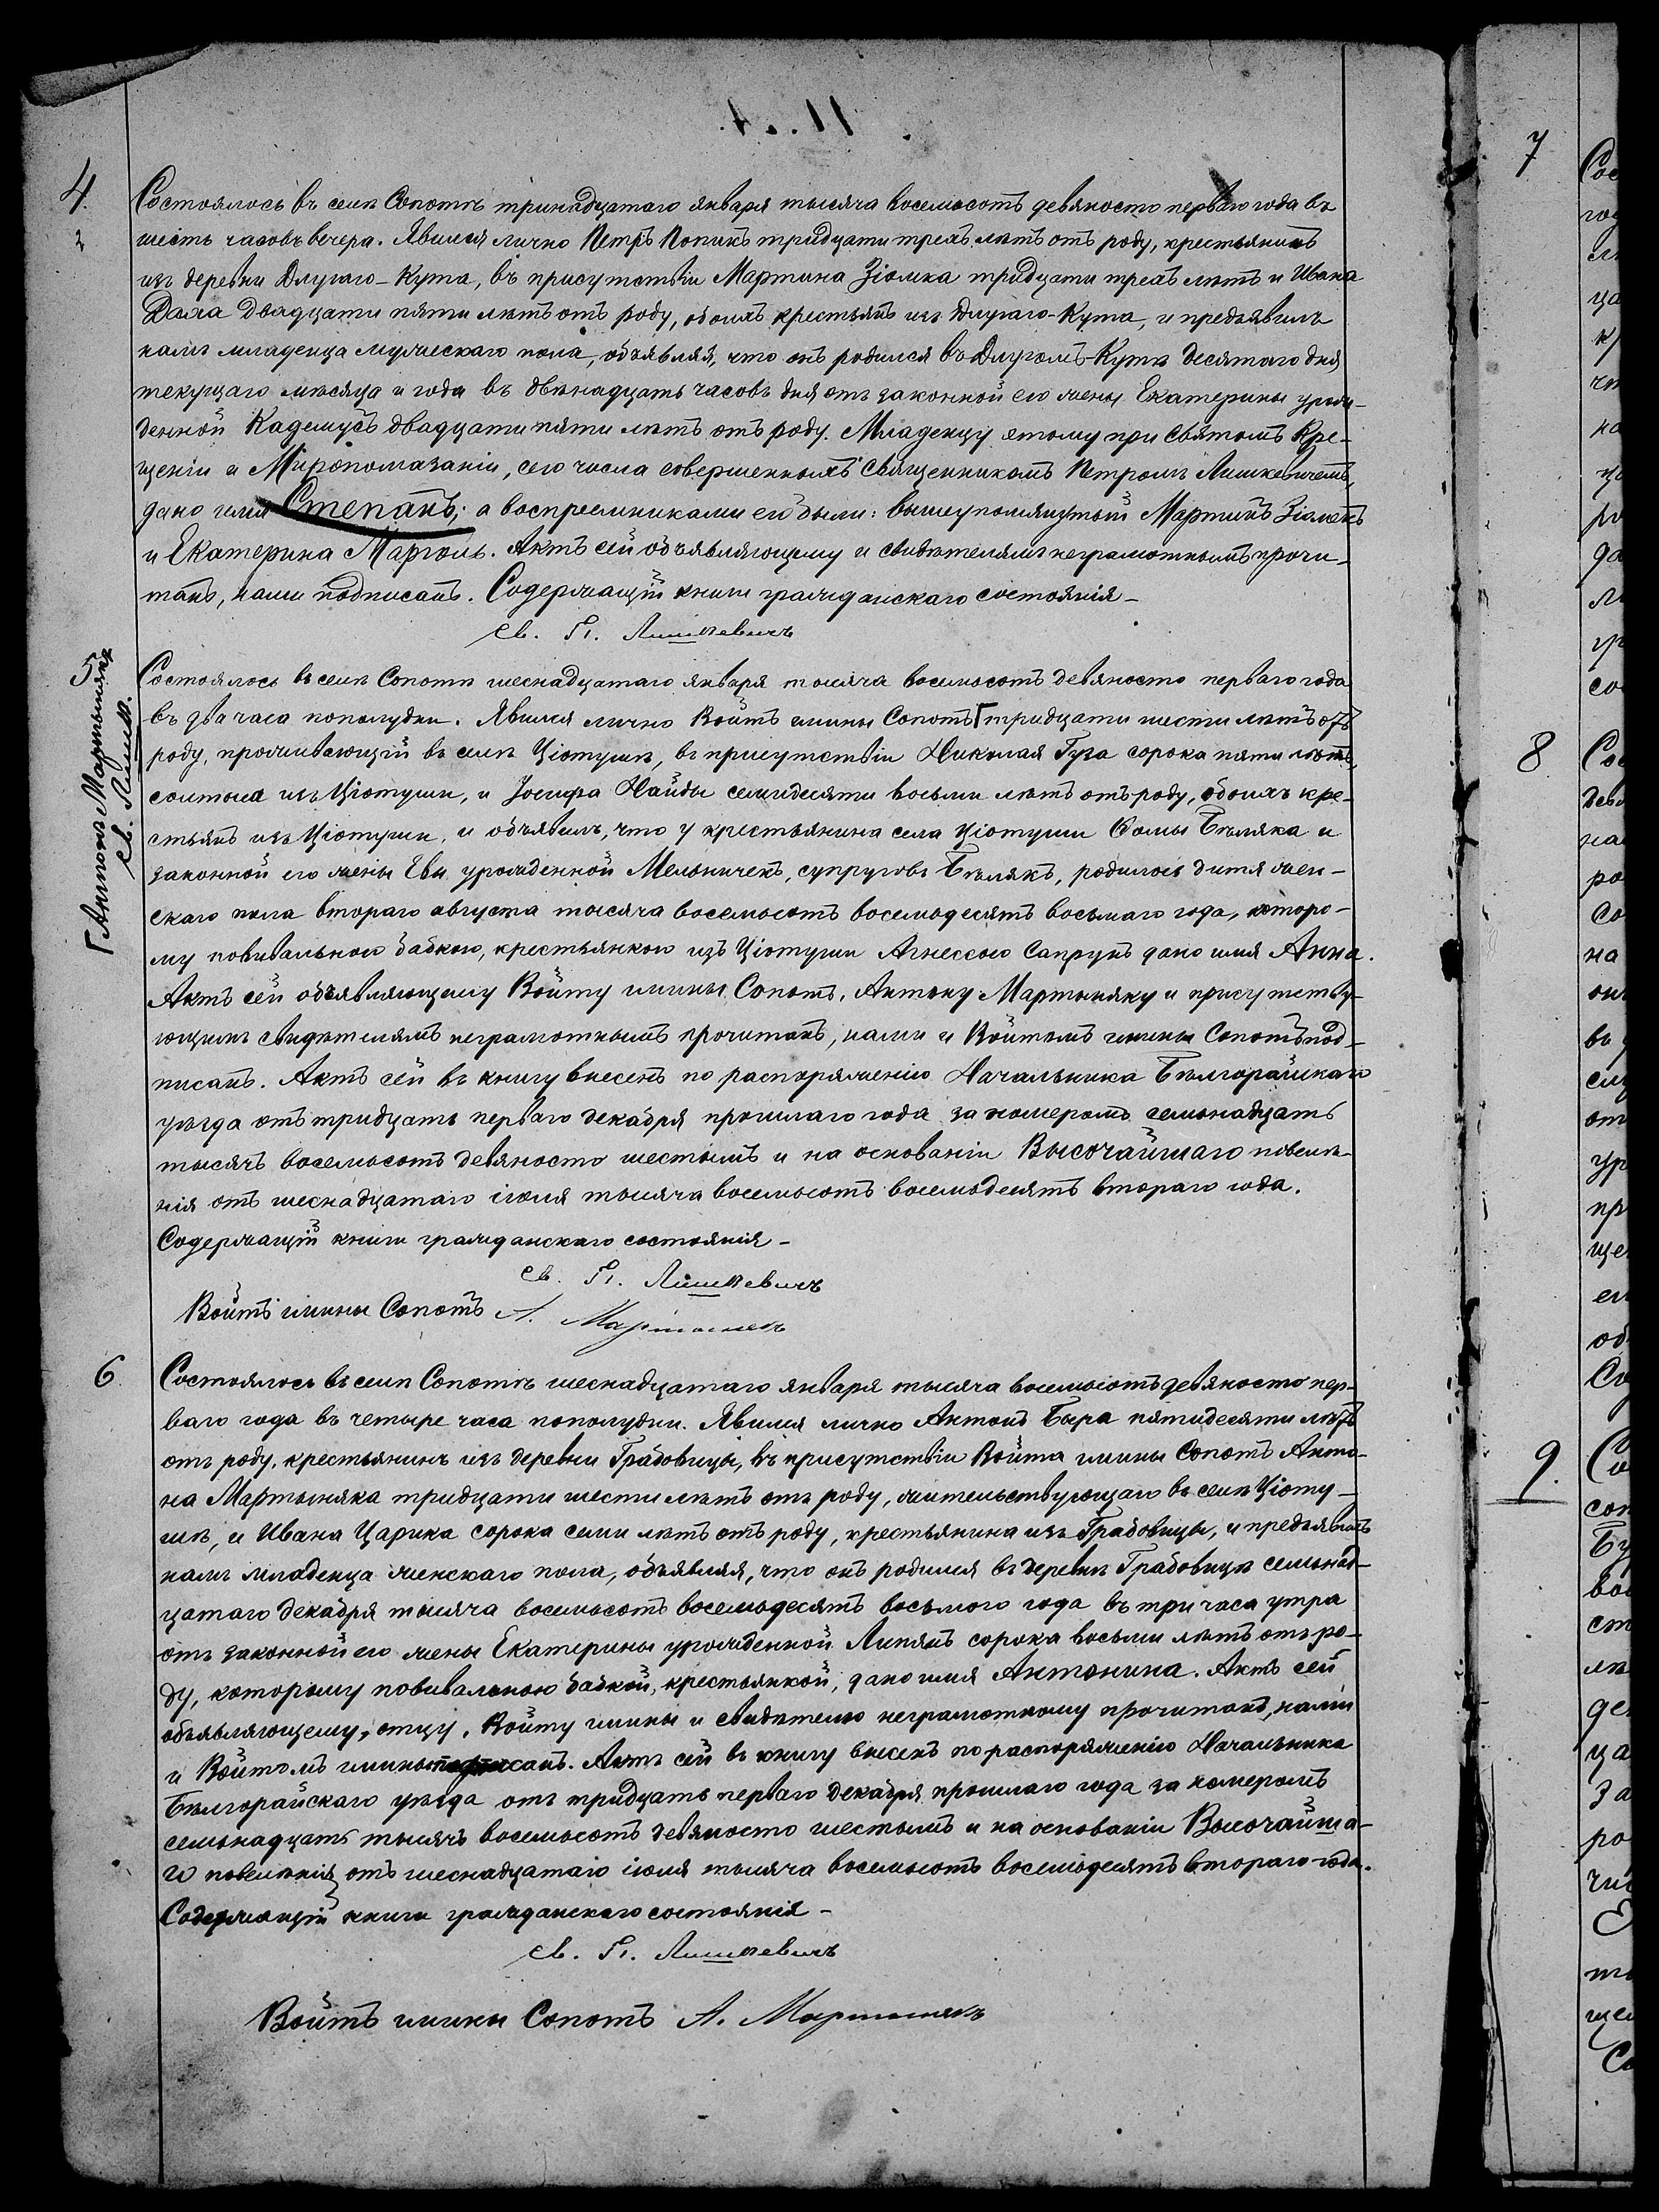 4.
2
Состоялось въ селѣ Сопотѣ тринадцатаго января тысяча восемьсотъ девяносто перваго года въ
шесть часовъ вечера. Явился лично Петръ Попикъ тридцати трехъ лѣтъ отъ роду, крестьянинъ
изъ деревни Длугаго-Кута, въ присутствіи Мартина Зіомка тридцати трехъ лѣтъ и Ивана
двадцати пяти лѣтъ отъ роду, обоихъ крестьянъ изъ Длугаго-Кута, и предъявилъ
намъ младенца мужескаго пола, объявляя, что онъ родился въ Длугомъ-Кутѣ десятаго дня
текущаго мѣсяца и года въ двѣнадцать часовъ дня отъ законной его жены Екатерины урож-
денной Кадемусъ двадцати пяти лѣтъ отъ роду. Младенцу этому при Святомъ Кре-
щеніи и Мѵропомазаніи, сего числа совершенныхъ Священникомъ Петромъ Лишкевичемъ,
дано имя Степанъ; а воспреемниками его были: вышеупомянутый Мартинъ Зіомекъ
и Екатерина Марголь. Актъ сей объявляющему и свидѣтелямъ неграмотнымъ прочи-
танъ, нами подписанъ. Содержащій книги гражданскаго состоянія -
св. П. Лишкевичъ
5
Г Антонъ Мартынякъ
св. Лишк.
Состоялось въ селѣ Сопотѣ шеснадцатаго января тысяча восемьсотъ девяносто перваго года
въ два часа пополудни. Явился лично Войтъ гмины Сопотъ Г тридцати шести лѣтъ отъ
роду, проживающій въ селѣ Ціотушѣ, въ присутствіи Николая Гуза сорока пяти лѣтъ,
солтыса изъ Ціотуши, и Іосифа Найды семидесяти восьми лѣтъ отъ роду, обоихъ кре-
стьянъ изъ Ціотуши, и объявилъ, что у крестьянина села Ціотуши Ѳомы Бѣляка и
законной его жены Евы урожденной Мельничекъ, супруговъ Бѣлякъ, родилось дитя жен-
скаго пола втораго августа тысяча восемьсотъ восемьдесятъ восьмаго года, которо-
му повивальною бабкою, крестьянкою изъ Ціотуши Агнессою Сапрунъ дано имя Анна.
Актъ сей объявляющему Войту гмины Сопотъ, Антону Мартыняку и присутству-
ющимъ свидѣтелямъ неграмотнымъ прочитанъ, нами и Войтомъ гмины Сопотъ под-
писанъ. Актъ сей въ книгу внесенъ по распоряженію Начальника Бѣлгорайскаго
уѣзда отъ тридцать перваго декабря прошлаго года за номеромъ семьнадцать
тысячъ восемьсотъ девяносто шестымъ и на основаніи Высочайшаго повелѣ-
нія отъ шеснадцатаго іюля тысяча восемьсотъ восемьдесятъ втораго года.
Содержащій книги гражданскаго состоянія -
св. П. Лишкевичъ
Войтъ гмины Сопотъ А. Мартынякъ
6
Состоялось въ селѣ Сопотѣ шеснадцатаго января тысяча восемьсотъ девяносто пер-
ваго года въ четыре часа пополудни. Явился лично Антонъ Быра пятидесяти лѣтъ
отъ роду, крестьянинъ изъ деревни Грабовицы, въ присутствіи Войта гмины Сопотъ Анто-
на Мартыняка тридцати шести лѣтъ отъ роду, жительствующаго въ селѣ Ціоту-
шѣ, и Ивана Царика сорока семи лѣтъ отъ роду, крестьянина изъ Грабовицы, и предъявилъ
намъ младенца женскаго пола, объявляя, что онъ родился въ деревнѣ Грабовицѣ семьнад-
цатаго декабря тысяча восемьсотъ восемьдесятъ восьмого года въ три часа утра
отъ законной его жены Екатерины урожденной Липянъ сорока восьми лѣтъ отъ ро-
ду, которому повивальною бабкой, крестьянкой, дано имя Антонина. Актъ сей
объявляющему, отцу, Войту гмины и свидѣтелю неграмотному прочитанъ, нами
и Войтомъ гмины подписанъ. Актъ сей въ книгу внесенъ по распоряженію Начальника
Бѣлгорайскаго уѣзда отъ тридцать перваго декабря прошлаго года за номеромъ
семьнадцать тысячъ восемьсотъ девяносто шестымъ и на основаніи Высочайша-
го повелѣнія отъ шеснадцатаго іюля тысяча восемьсотъ восемьдесятъ втораго года.
Содержащій книги гражданскаго состоянія -
св. П. Лишкевичъ
Войтъ гмины Сопотъ А. Мартынякъ
7
8
9.